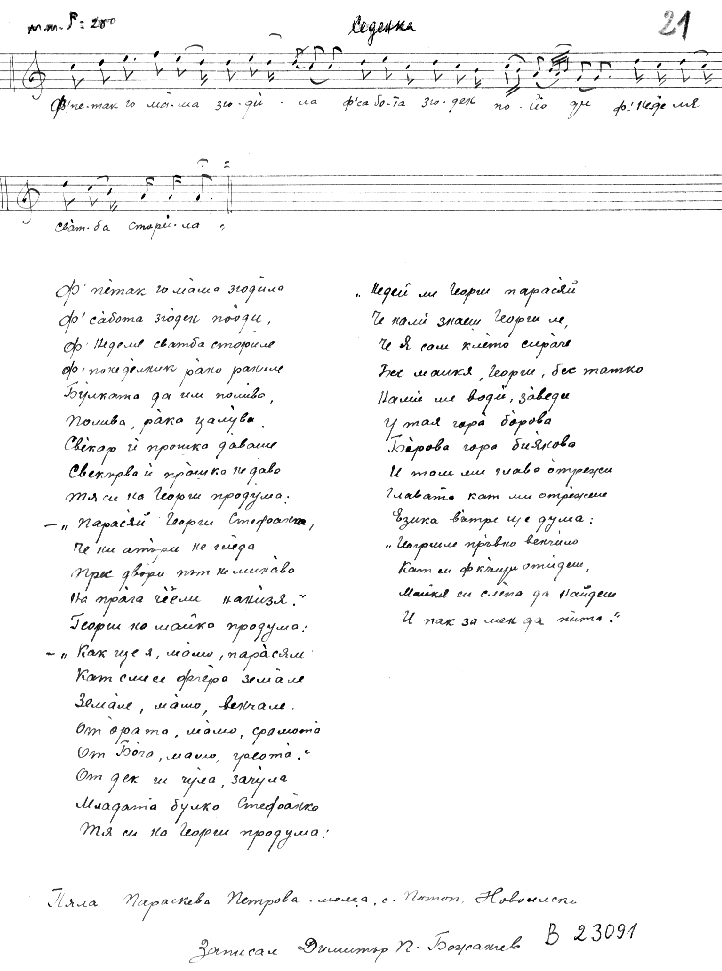 м.м. ♪= 200
Седенка
21
Ф' пе-так го ма-ма зго-ди - ла ф' са-бо-та зго-ден по-йо ди ф' неде ля
сват-ба стори-ла
Ф' пѐтак го ма̀ма згодѝло
Ф' са̀бота зго̀ден по̀оди,
Ф' Неделе сватба сториле
Ф' понедѐлник рано раниле
Бу̀лката да им полѝва,
Полива, ра̀ка цалу̀ва.
Свѐкор ѝ прошка да̀ваше
Свекърва ѝ про̀шка не да̀ва
Тя си на Георги продума:
– „Парася̀й Георги Стефа̀нка,
Че ни а̀търи не глѐда
През дво̀ри път не мина̀ва
На пра̀га чѐли нанѝзя."
Георги на ма̀йка продума:
– „Как ще я, ма̀мо, пара̀сям
Кат сми се фчѐра земале
Зема̀ле, ма̀мо, венчале.
От о̀рата, ма̀мо, срамота̀
От Бо̀га, мамо, греота̀."
От дек ги чу̀ла, зачу̀ла
Млада̀та булка Стефа̀нка
Тя си на Георги продума:
„Недѐй ме Георги парася̀й
Че нали̇̀ знаеш Георги ле,
Че я̀ сам клѐто сира̀че
Бес майкя, Георги, бес татко
Нали̇̀ ме водѝ, за̀веди
У тая гора̀ бо̀рова
Бо̀рова гора бу̀кова
И там ми глава̀ отрежи
Глава̀та кат ми отрѐжеш
Езика вътре ще ду̀ма:
„Георгиле пръ̀вно венчило
Кат си ф къ̀щи отѝдеш,
Майкя си сля̀па да найдеш
И пак за мен да пѝта."
Пяла Параскева Петрова - мома, с. Новоселско
Записал Димитър П. Божанов
В 23091